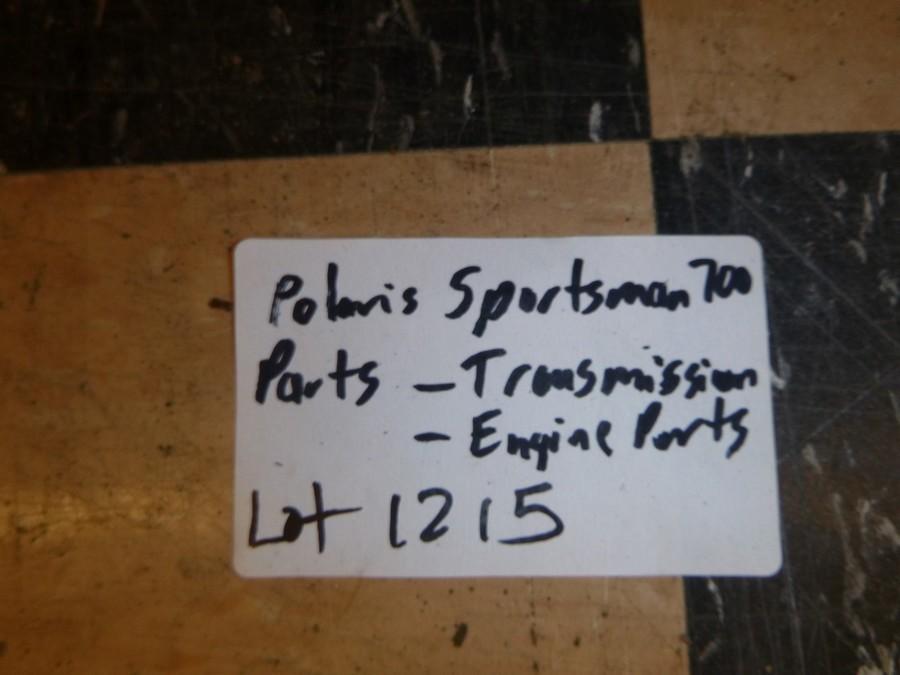 Polaris Sportsman 700
Parts - Transmission
- Engine Parts
Lot 1215